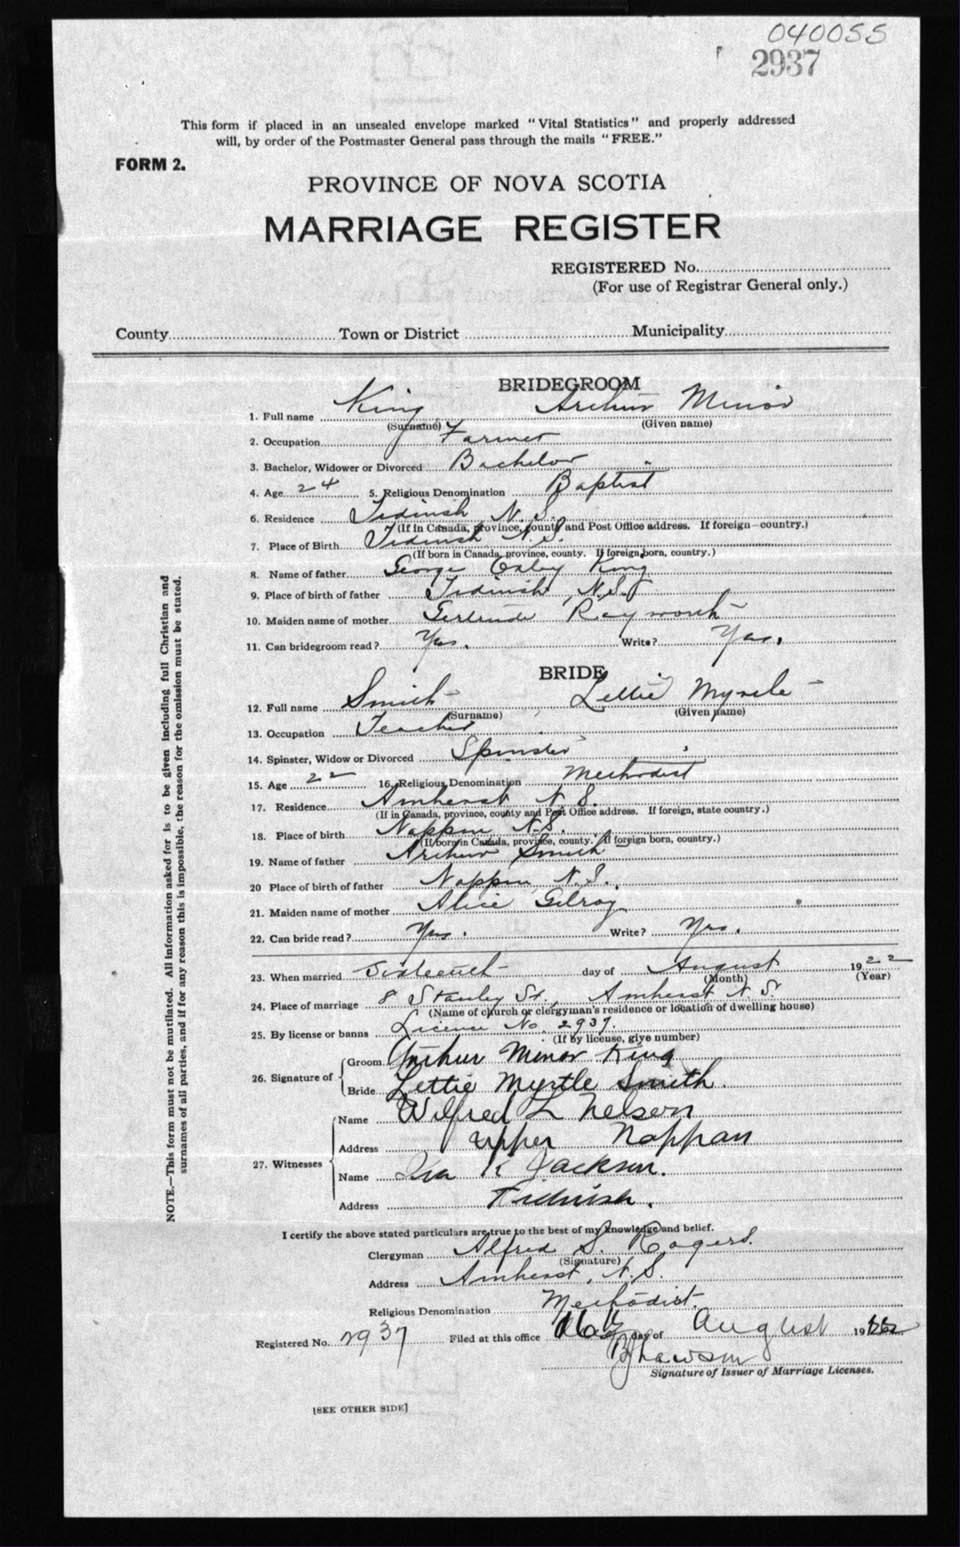 040055
2937
This form if placed in an unsealed envelope marked "Vital Statistics" and properly addressed
will, by order of the Postmaster General pass through the mails "FREE."
FORM 2.
PROVINCE OF NOVA SCOTIA
MARRIAGE REGISTER
REGISTERED No.
(For use of Registrar General only.)
County Town or District Municipality
BRIDEGROOM
1. Full name King Arthur Minor
(Surname) (Given name)
2. Occupation Farmer
3. Bachelor, Widower or Divorced Bachelor
4. Age 24 5. Religious Denomination Baptist
6. Residence Tidnish N.S.
(If in Canada, province, county and Post Office address. If foreign—country.)
7. Place of Birth Tidnish N.S.
(If born in Canada, province, county. If foreign born, country.)
8. Name of father George Oxley King
9. Place of birth of father Tidnish, N.S.
10. Maiden name of mother Gertrude Rayworth
11. Can bridegroom read? Yes. Write? Yes.
BRIDE
12. Full name Smith Lettie Myrtle
(Surname) (Given name)
13. Occupation Teacher
14. Spinster, Widow or Divorced Spinster
15. Age 22 16. Religious Denomination Methodist
17. Residence Amherst N.S.
(If in Canada, province, county and Post Office address. If foreign, state country.)
18. Place of birth Nappan N.S.
(If born in Canada, province, county. If foreign born, country.)
19. Name of father Arthur Smith
20 Place of birth of father Nappan, N.S.
21. Maiden name of mother Alice Gilroy
22. Can bride read? Yes. Write? Yes.
23. When married Sixteenth day of August 1922
(Month) (Year)
24. Place of marriage 8 Stanley St., Amherst N.S.
(Name of church or clergyman's residence or location of dwelling house)
25. By license or banns License No. 2937.
(If by license, give number)
26. Signature of Groom Arthur Minor King
Bride Lettie Myrtle Smith.
27. Witnesses Name Wilfred L Nelson
Address Upper Nappan
Name Iva K Jackson.
Address Tidnish.
I certify the above stated particulars are true to the best of my knowledge and belief.
Clergyman Alfred S. Rogers.
(Signature)
Address Amherst, N.S.
Religious Denomination Methodist.
Registered No. 2937 Filed at this office 16th day of August 1922
Signature of Issuer of Marriage Licenses.
[SEE OTHER SIDE]
NOTE.—This form must not be mutilated. All information asked for is to be given including full Christian and
surnames of all parties, and if for any reason this is impossible, the reason for the omission must be stated.